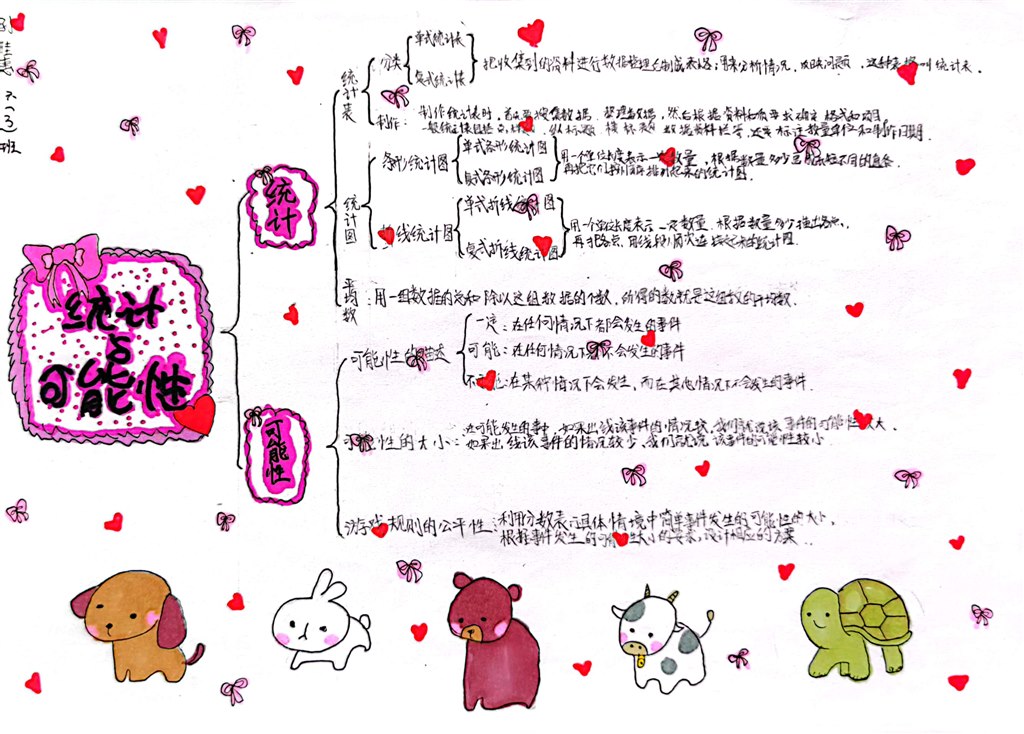 六(3)班
统计
与
可能性
统计
统计表
分类
单式统计表
复式统计表
把收集到的资料进行数据整理 制成表格,用来分析情况,反映问题,这种表格叫统计表。
制作:
制作统计表时,首先要搜集数据,整理数据,然后根据资料和 要求确定格式和项目
数据资料栏等,还要标注数量单位和制作日期.
统计图
条形统计图
单式条形统计图
复式条形统计图
用一个单位长度表示一定数量,根据数量多少画 长短不同的直条
再把它们按 顺序排列起来的统计图.
折线统计图
单式折线统计图
复式折线统计图
用一个单位长度表示一定数量,根据数量多少描出各点.
再把各点用线段顺次连接起来的统计图.
平均数:用一组数据的总和除以这组数据的个数,所得的数就是这组数的平均数.
可能性
可能性的
一定:在任何情况下都会发生的事件
可能:在任何情况下 不会发生的事件
不 能:在某种情况下会发生,而在其他情况下不会发生的事件.
可能性的大小:
可能发生的事件,如果出线该事件的情况较 ,我们就说该事件的可能性 大.
如果出线该事件的情况较少,我们就说,该事件的可能性较小.
游戏规则的公平性:
利用分数表示具体情境中简单事件发生的可能性的大小.
根据事件发生的可能性大小的要求,设计相应的方案.